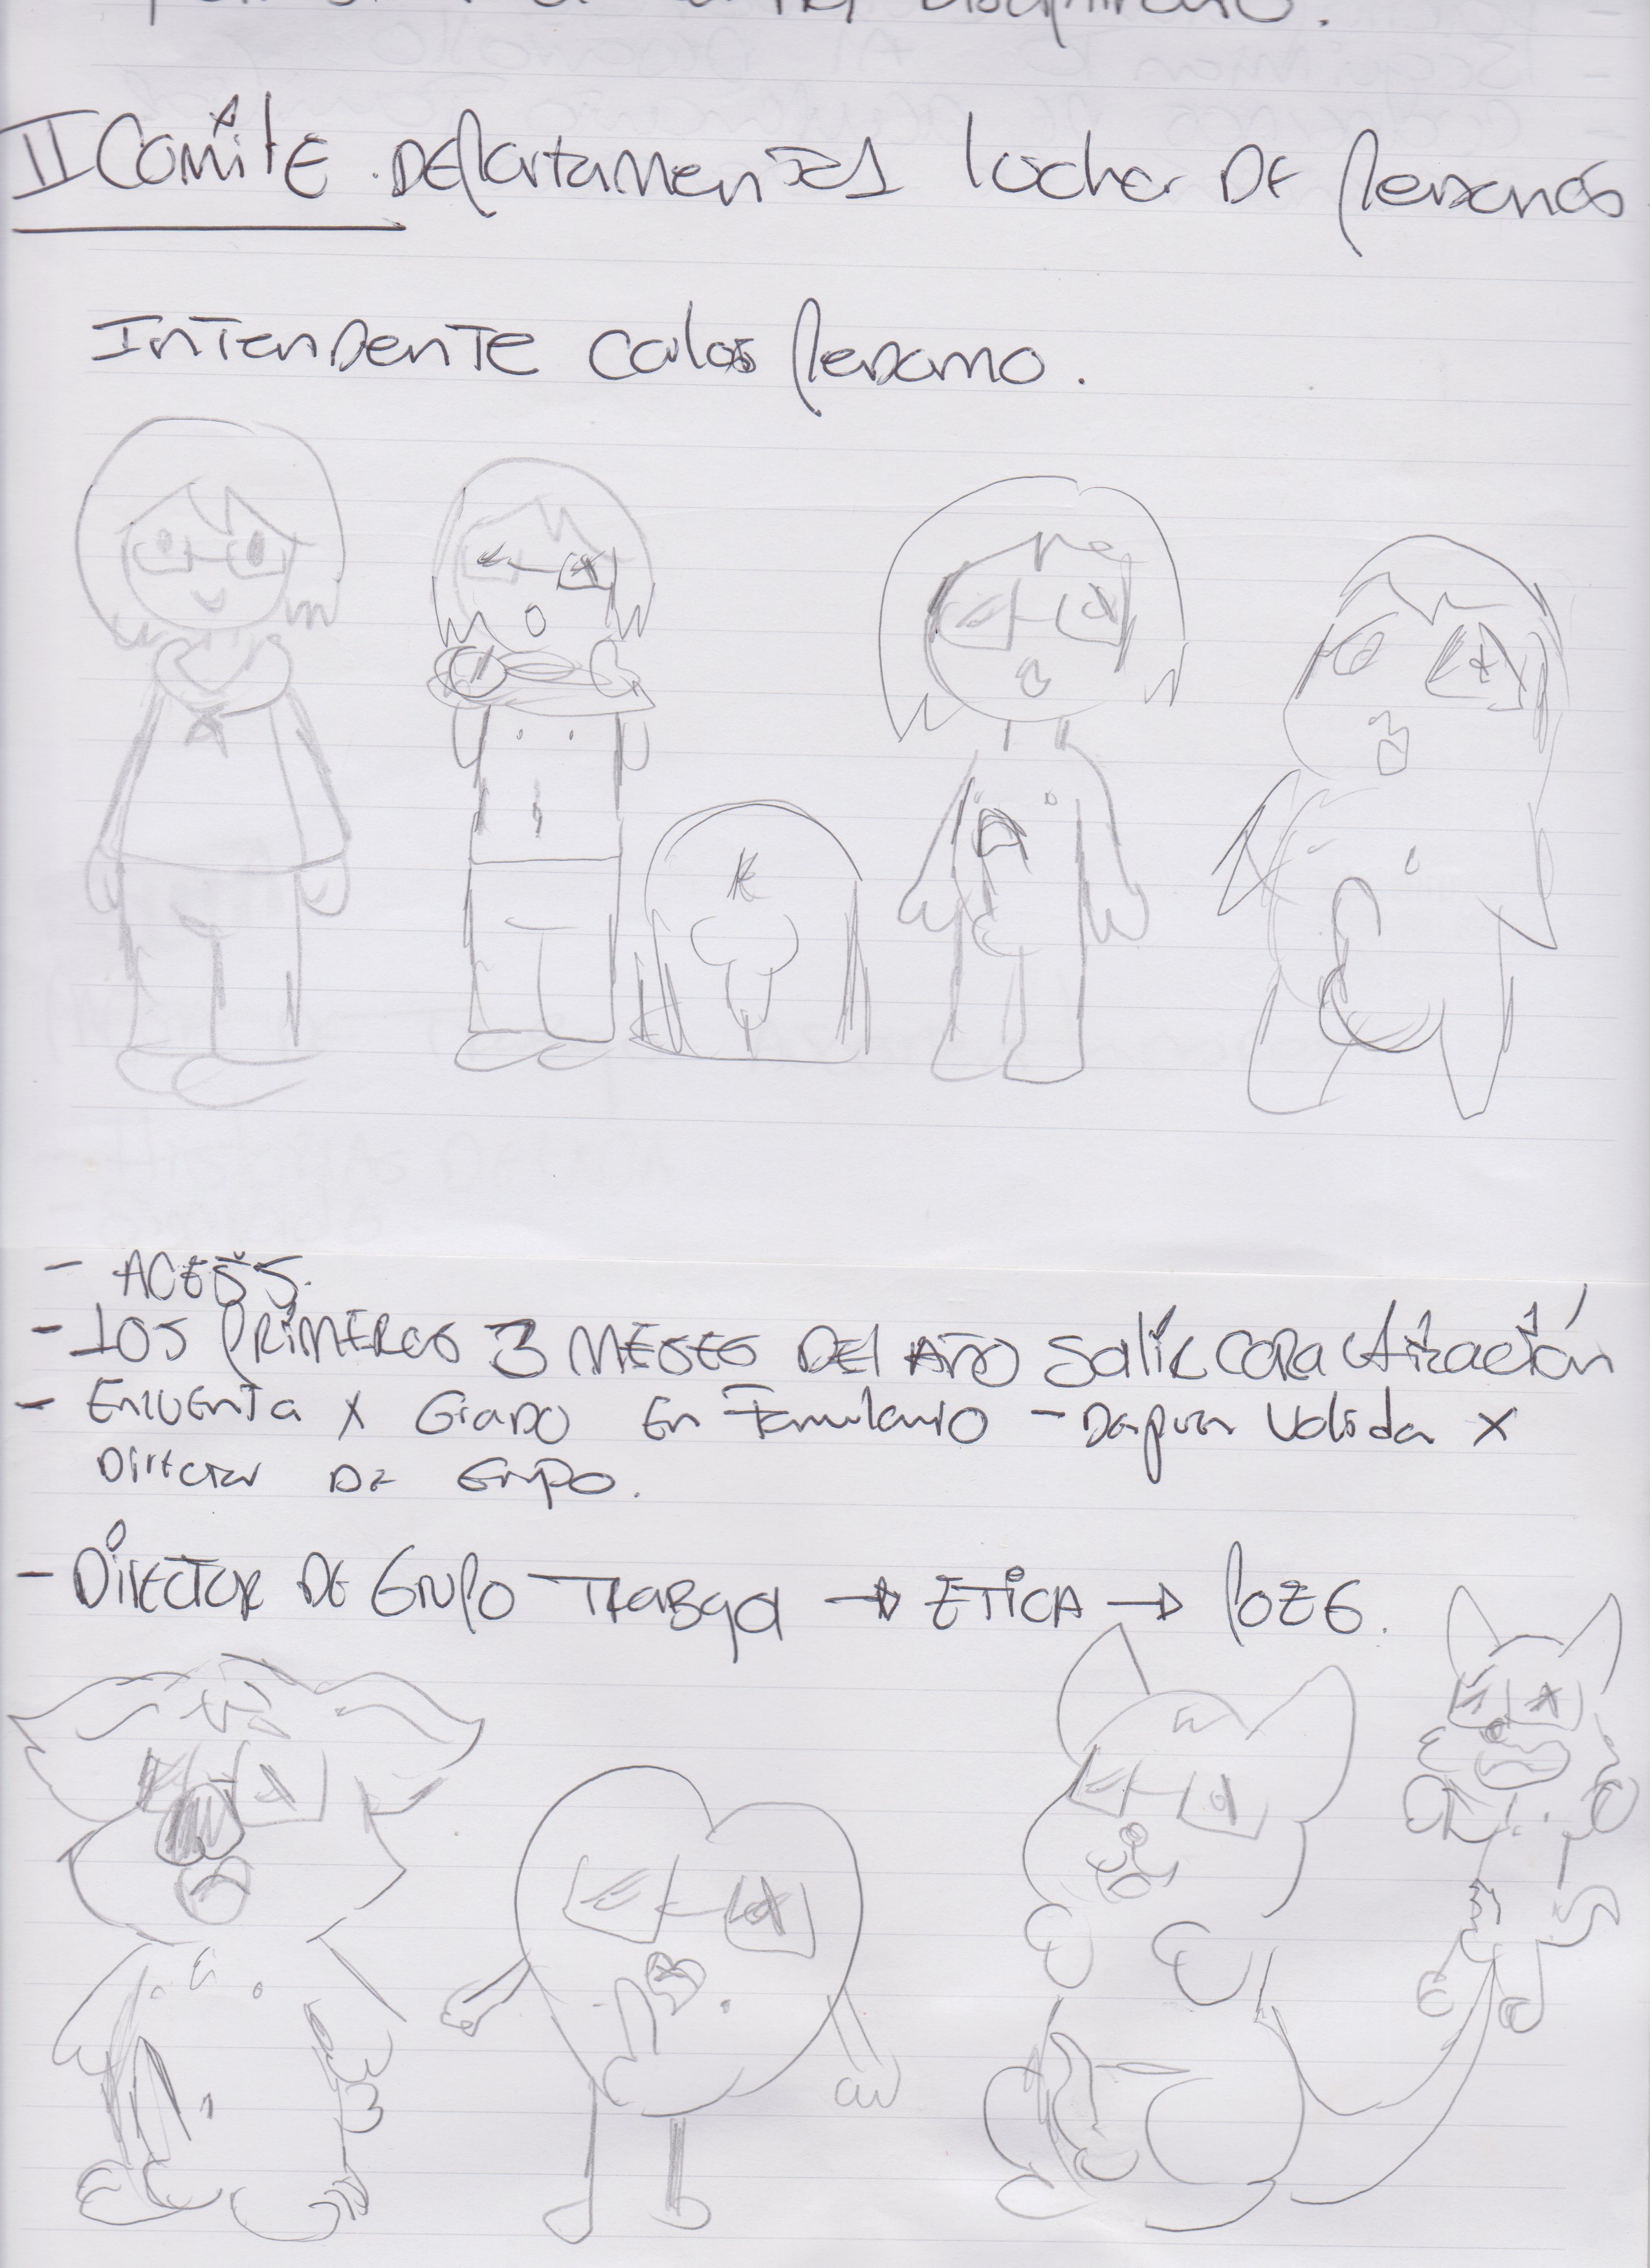 II Comité Departamental lucha DE personas
Intendente Calos perdomo.
- ACESS.
- los primeros 3 meses del Año salir caractirización
- Encuenta x Grado En Formulario - Despues Valida x
Director DE Grupo.
- Director DE Grupo Trabaja → ETICA → POEG.